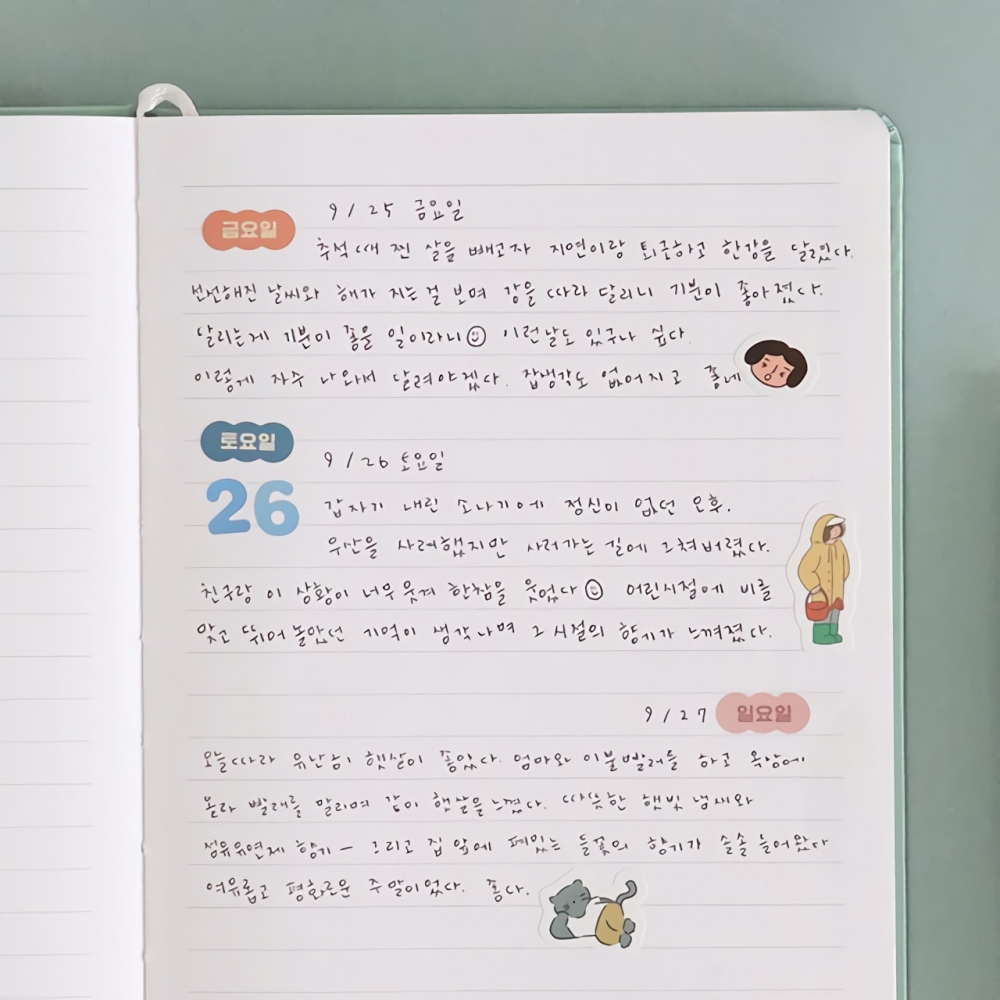 금요일
9/25 금요일
추석 때 찐 살을 빼고자 지연이랑 퇴근하고 한강을 달렸다.
선선해진 날씨와 해가 지는 걸 보며 강을 따라 달리니 기분이 좋아졌다.
달리는게 기분이 좋을 일이라니 이런날도 있구나 싶다.
이렇게 자주 나와서 달려야겠다. 잡생각도 없어지고 좋네
토요일
26
9/26 토요일
갑자기 내린 소나기에 정신이 없던 오후.
우산을 사려했지만 사러가는 길에 그쳐버렸다.
친구랑 이 상황이 너무 웃겨 한참을 웃었다 어린시절에 비를
맞고 뛰어놀았던 기억이 생각나며 그 시절의 향기가 느껴졌다.
9/27 일요일
오늘따라 유난히 햇살이 좋았다. 엄마와 이불빨래를 하고 옥상에
올라 빨래를 말리며 같이 햇살을 느꼈다. 따뜻한 햇빛 냄새와
섬유유연제 향기 - 그리고 집 앞에 펴있는 들꽃의 향기가 솔솔 들어왔다
여유롭고 평화로운 주말이었다. 좋다.